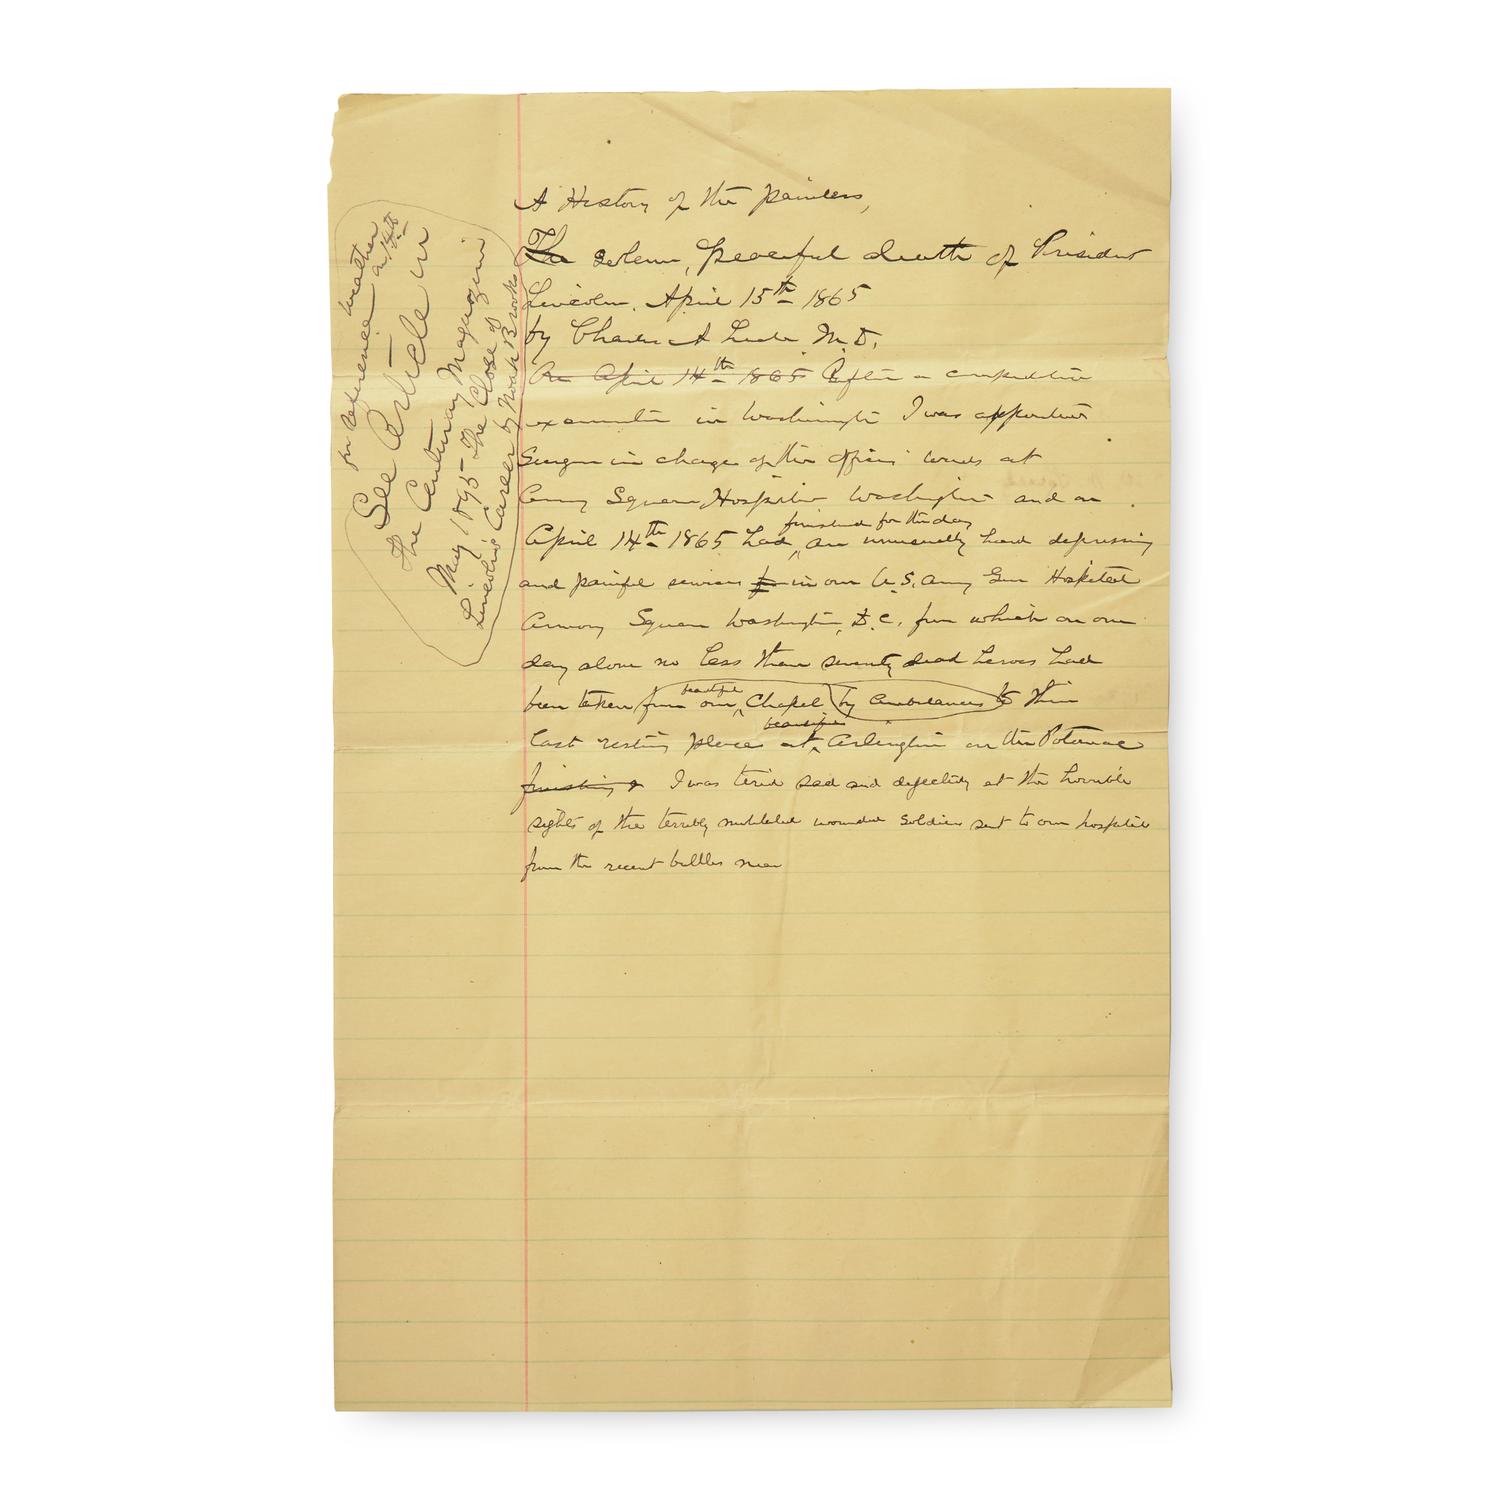 A History of the painless,
The solemn, peaceful death of President
Lincoln. April 15th 1865
by Charles A Leale M.D.
On April 14th 1865 After a competitive
examination in Washington I was appointed
Surgeon in charge of the Officers' wards at
Army Square Hospital Washington and on
April 14th 1865 had finished for the day an unusually hard depressing
and painful services in our U.S. Army Gen Hospital
Armory Square Washington, D.C. from which on one
day alone no less than seventy dead heroes had
been taken from our beautiful Chapel by ambulances to their
last resting places at beautiful Arlington on the Potomac
finishing I was tired sad and dejected at the horrible
sights of the terribly mutilated wounded soldiers sent to our hospital
from the recent battles near
for reference weather on 14th
See Article in
The Century Magazine
May 1895 The Close of
Lincoln's Career by Noah Brooks